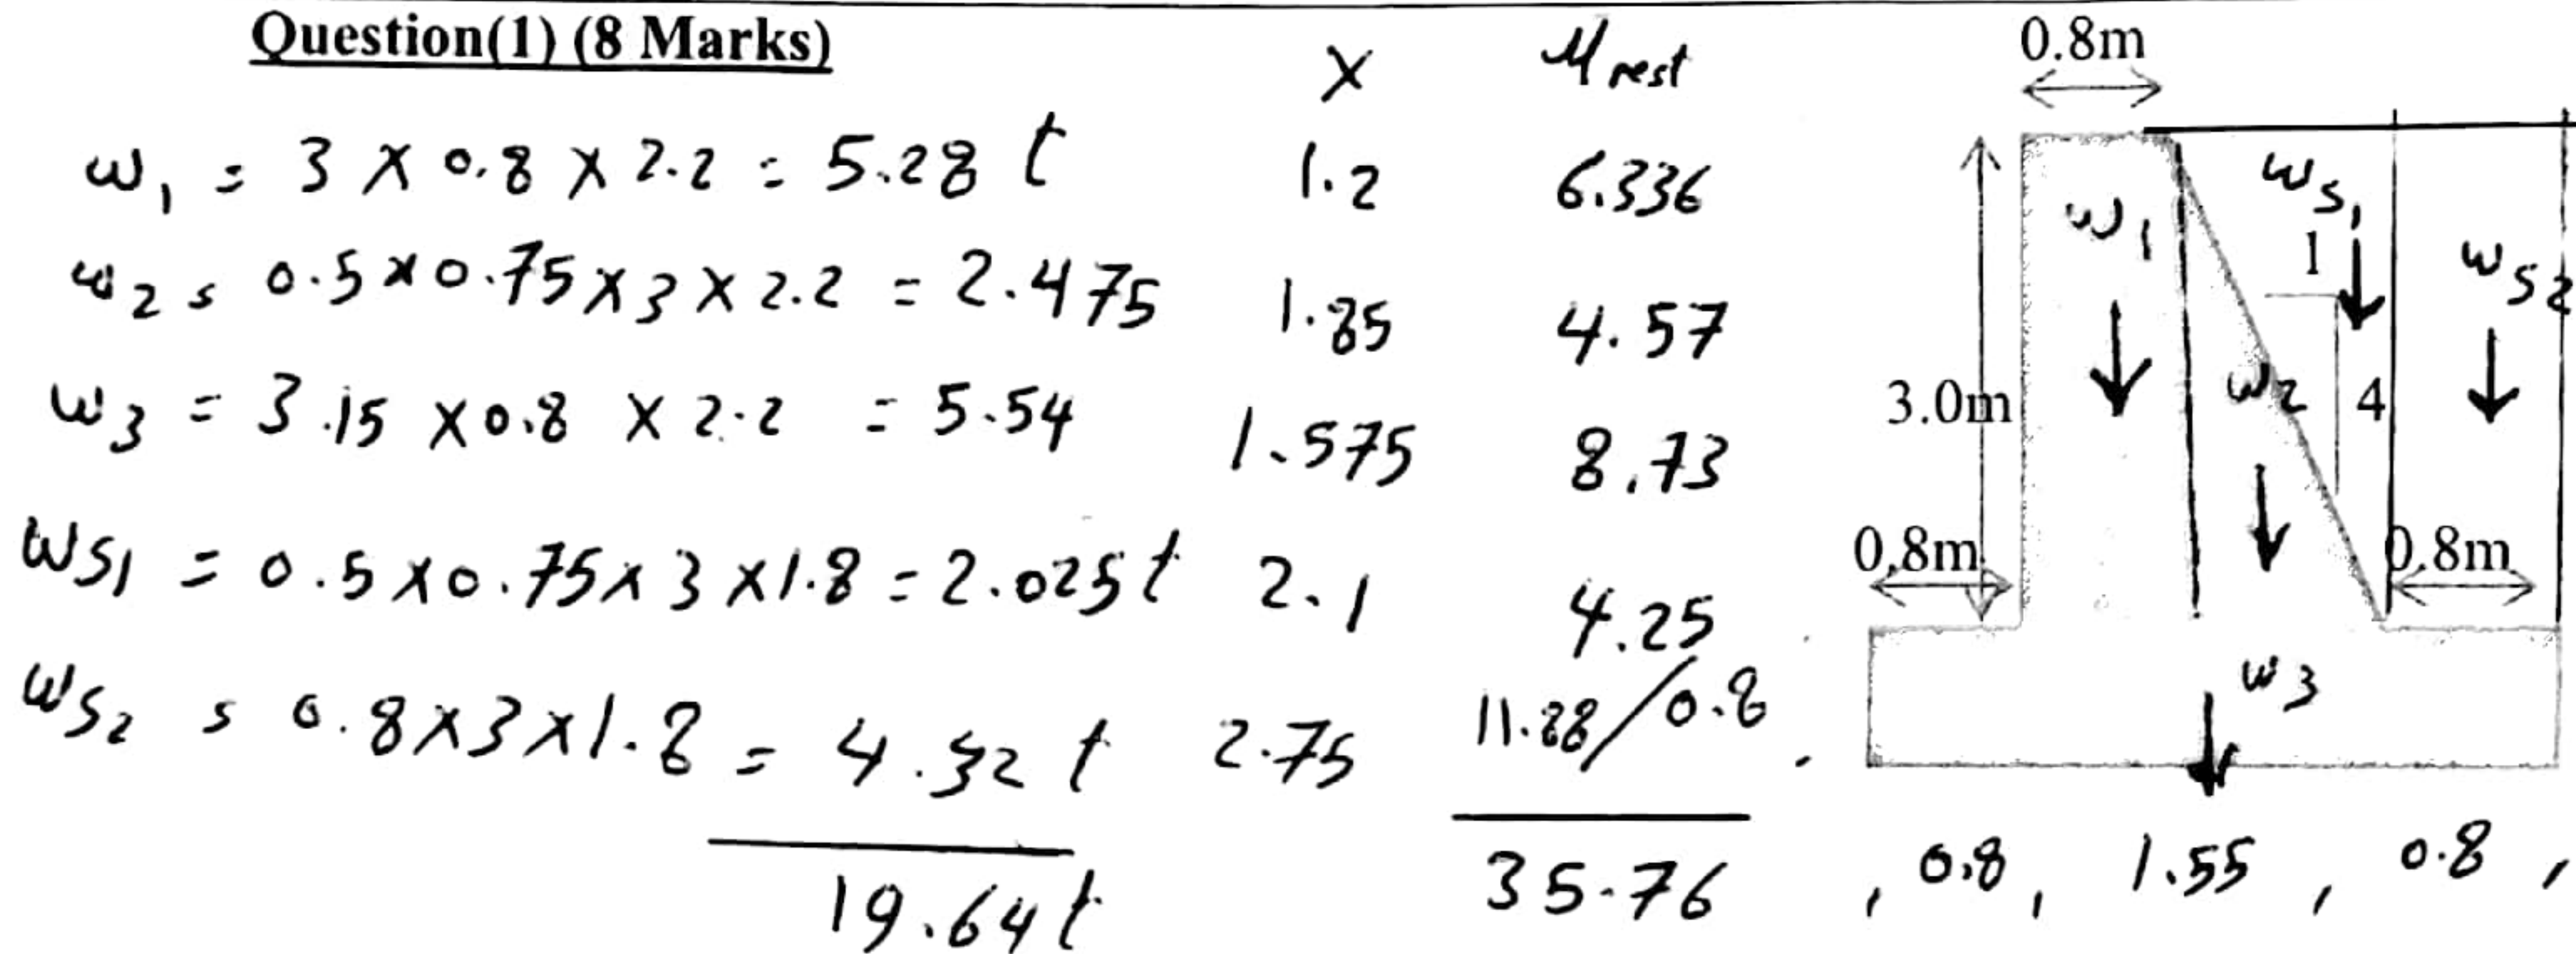 Question(1) (8 Marks)
X M rest
w1 = 3 x 0.8 x 2.2 = 5.28 t 1.2 6.336
w2 = 0.5 x 0.75 x 3 x 2.2 = 2.475 1.85 4.57
w3 = 3.15 x 0.8 x 2.2 = 5.54 1.575 8.73
ws1 = 0.5 x 0.75 x 3 x 1.8 = 2.025 t 2.1 4.25
ws2 = 0.8 x 3 x 1.8 = 4.32 t 2.75 11.88/0.8
19.64 t 35.76
0.8m
ws1
w1
1
ws2
3.0m
w2
4
0.8m
0.8m
w3
, 0.8, 1.55, 0.8,